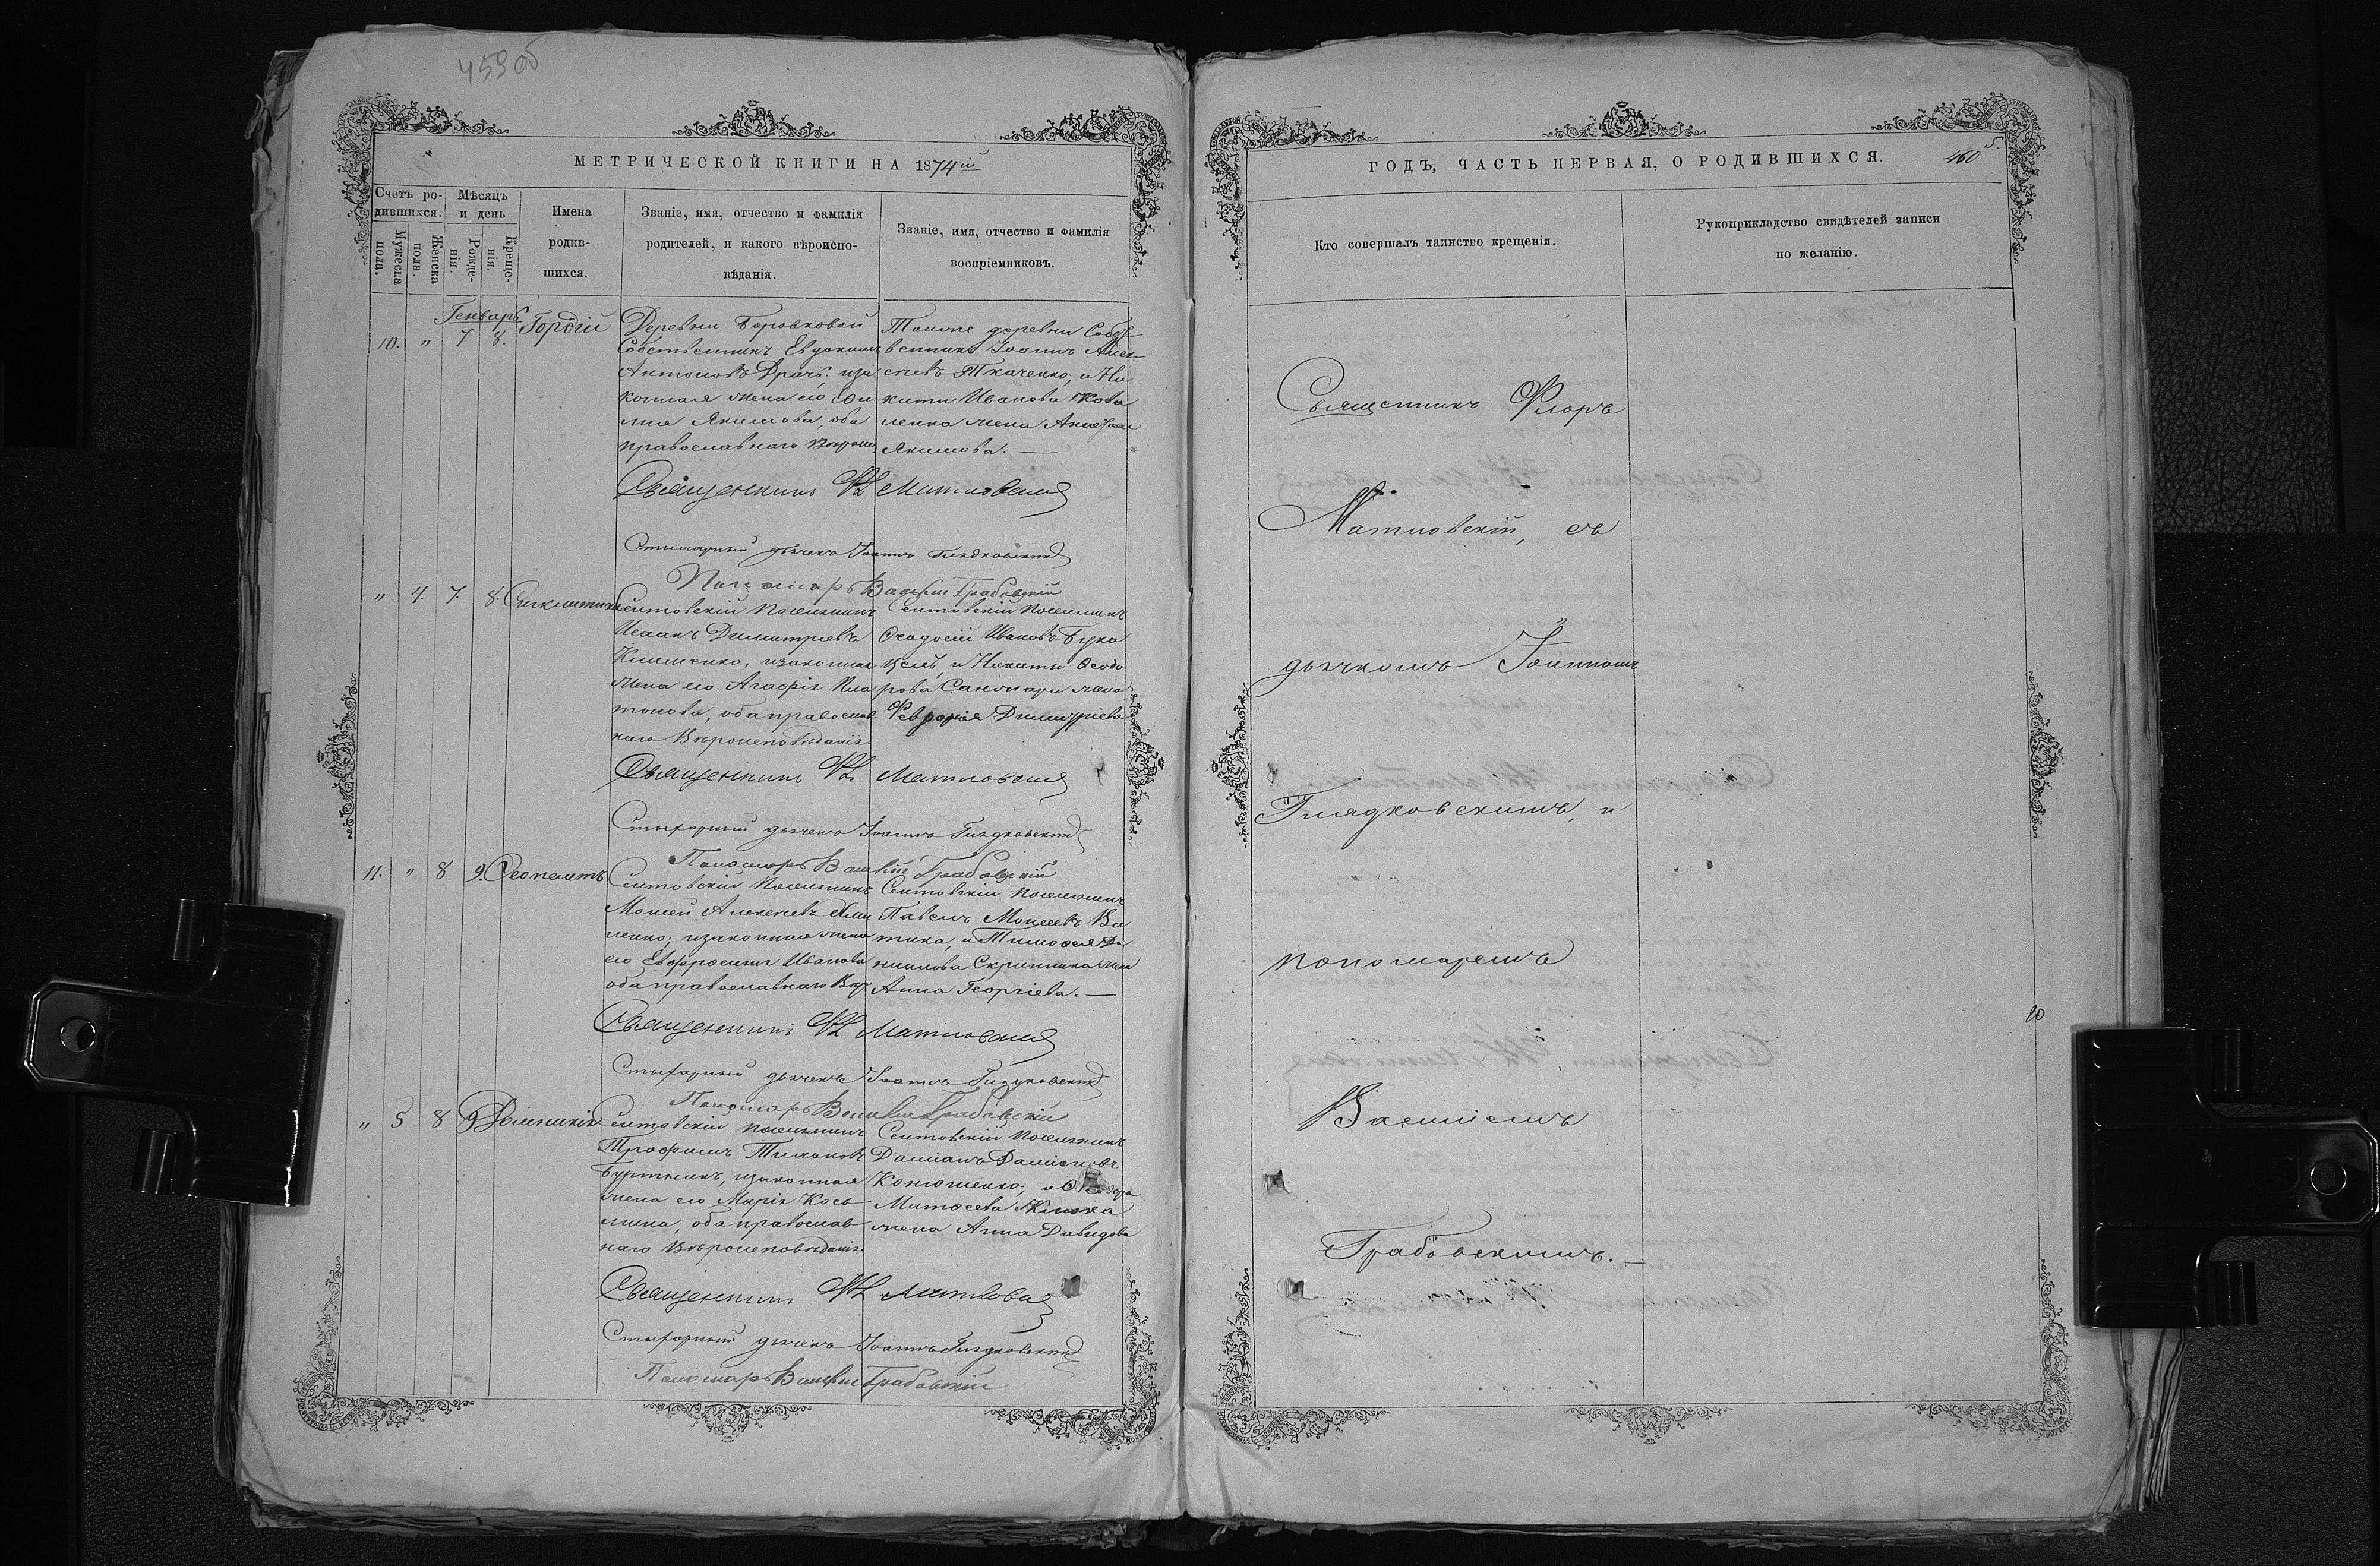 459 об
МЕТРИЧЕСКОЙ КНИГИ НА 1874й
Счетъ ро-
дившихся.
Мужеска пола.
Женска пола.
Мѣсяцъ
и день
Рожде-
нія.
Креще-
нія.
Имена
родив-
шихся.
Званіе, имя, отчество и фамилія
родителей, и какого вѣроиспо-
вѣданія.
Званіе, имя, отчество и фамилія
воспріемниковъ.
Генварь
10. " 7 8. Гордій
Деревни Боровковой
Собственникъ Евдокимъ
Антоновъ Драчъ; и за
конная жена его
Якимова, оба
православнаго
Тойже деревни Собст
венникъ Іоаннъ Алек
сѣевъ Ткаченко; и Ни
киты Иванова Кова
ленка жена
Якимова. —
Священникъ Фл Матловскій
Стихарный дьячекъ Іоаннъ Глядковскій
Пономарь Василій Грабовскій
" 4. 7. 8. Синклитикія
Сентовскій поселянинъ
Исаакъ Димитріевъ
Клименко, и законная
жена его Агафія Пла
тонова, оба православ
наго Вѣроисповѣданія
Сентовскій поселянинъ
Ѳеодосій Ивановъ
и Никиты Ѳеодо
рова жена
Феврронія Димитріева
Священникъ Фл Матловскій
Стихарный дьячекъ Іоаннъ Глядковскій
Пономарь Василій Грабовскій
11. " 8 9. Ѳеопемптъ
Сентовскій поселянинъ
Моисей Алексѣевъ
ленко; и законная жена
его Евфросинія Иванова
оба православнаго Вѣр.
Сентовскій поселянинъ
Павелъ Моисеевъ
и Тимоѳея Да
нилова Скрипника жена
Анна Георгіева. —
Священникъ Фл Матловскій
Стихарный дьячекъ Іоаннъ Глядковскій
Пономарь Василій Грабовскій
" 5 8 9 Домникія
Сентовскій поселянинъ
Трофимъ Тимоновъ
и законная
жена его Марія Косъ
мина, оба православ
наго Вѣроисповѣданія
Сентовскій поселянинъ
Даміанъ Даміановъ
Конюшенко;
Матѳеева
жена Анна Давидова
Священникъ Фл Матловскій
Стихарный дьячекъ Іоаннъ Глядковскій
Пономарь Василій Грабовскій
ГОДЪ, ЧАСТЬ ПЕРВАЯ, О РОДИВШИХСЯ.
460 5.
Кто совершалъ таинство крещенія.
Рукоприкладство свидѣтелей записи
по желанію.
Священникъ Флоръ
Матловскій, съ
дьячкомъ Іоанномъ
Глядковскимъ, и
пономаремъ
Василіемъ
Грабовскимъ. —